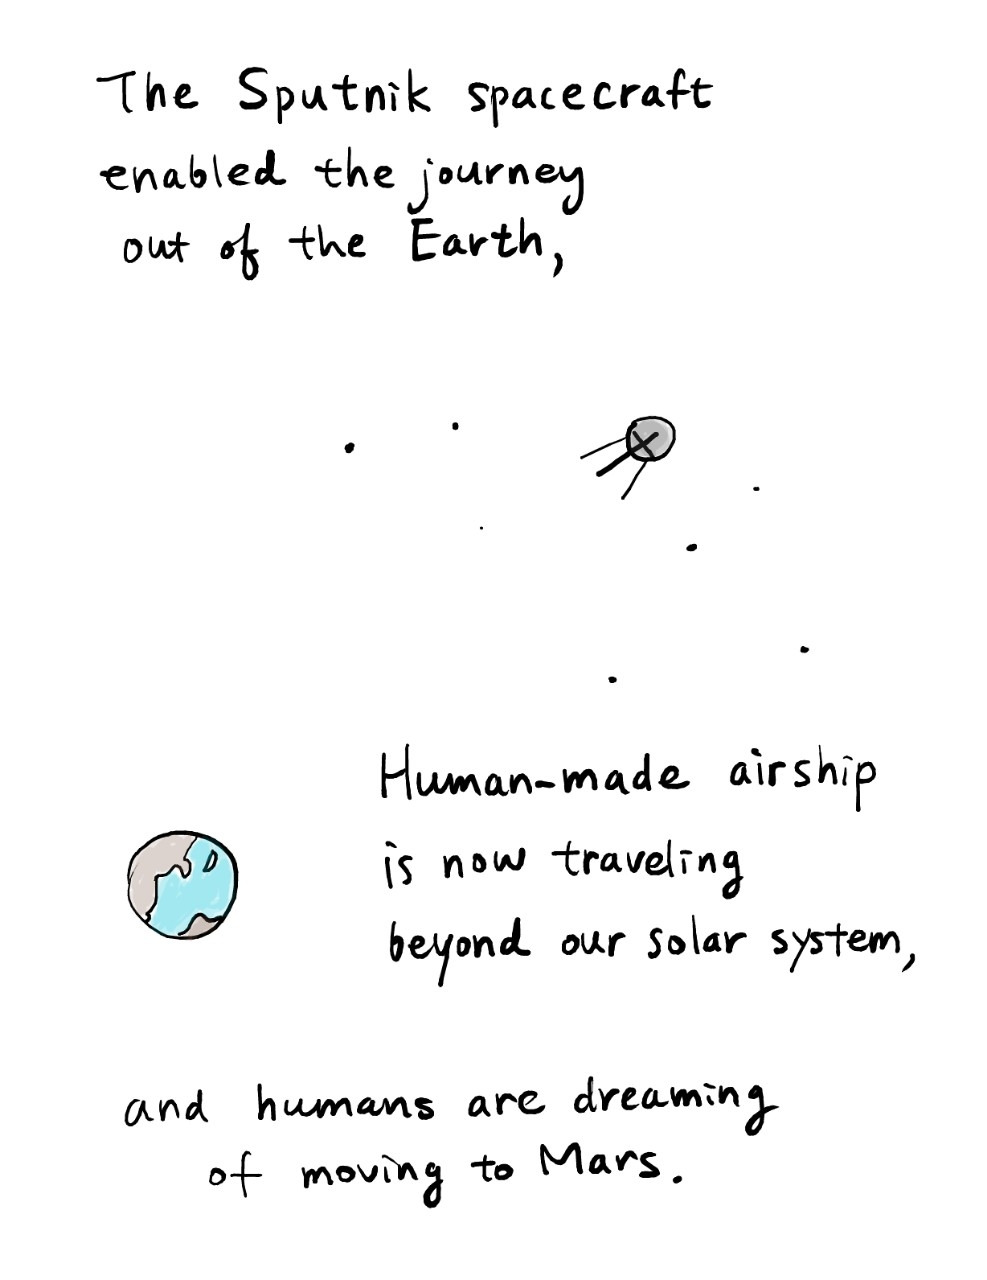 The Sputnik spacecraft
enabled the journey
out of the Earth,
Human-made airship
is now traveling
beyond our solar system,
and humans are dreaming
of moving to Mars.